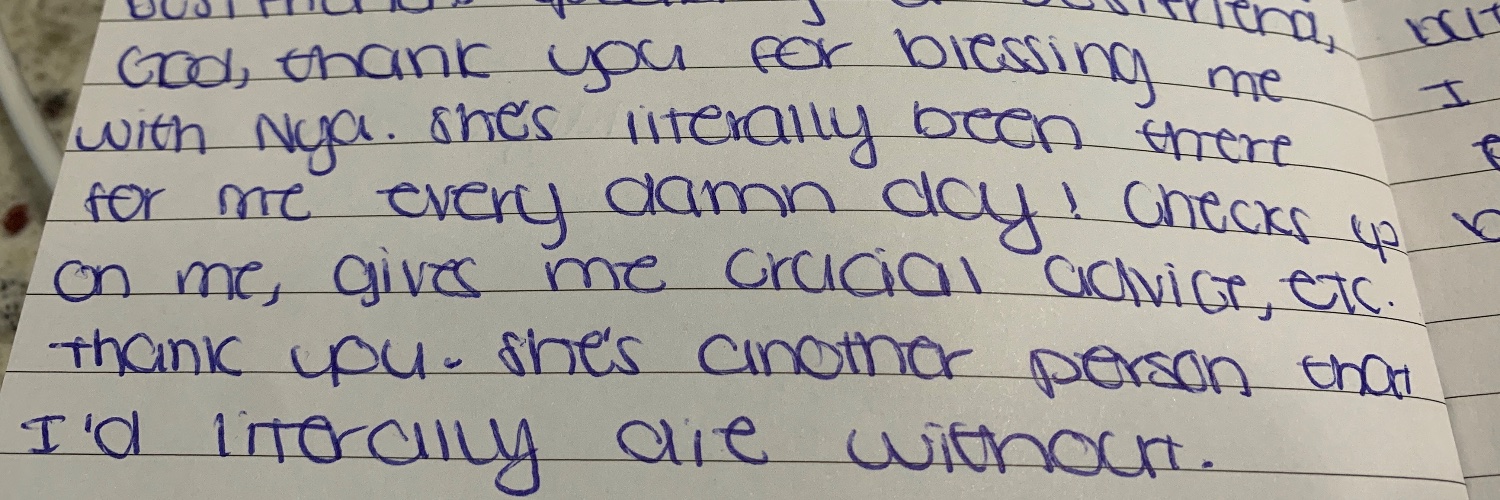 God, thank you for blessing me
with Nya. She's literally been there
for me every damn day! Checks up
on me, gives me crucial advice, etc.
Thank you. She's another person that
I'd literally die without.
I